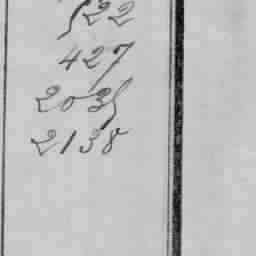 522
427
2035
2138